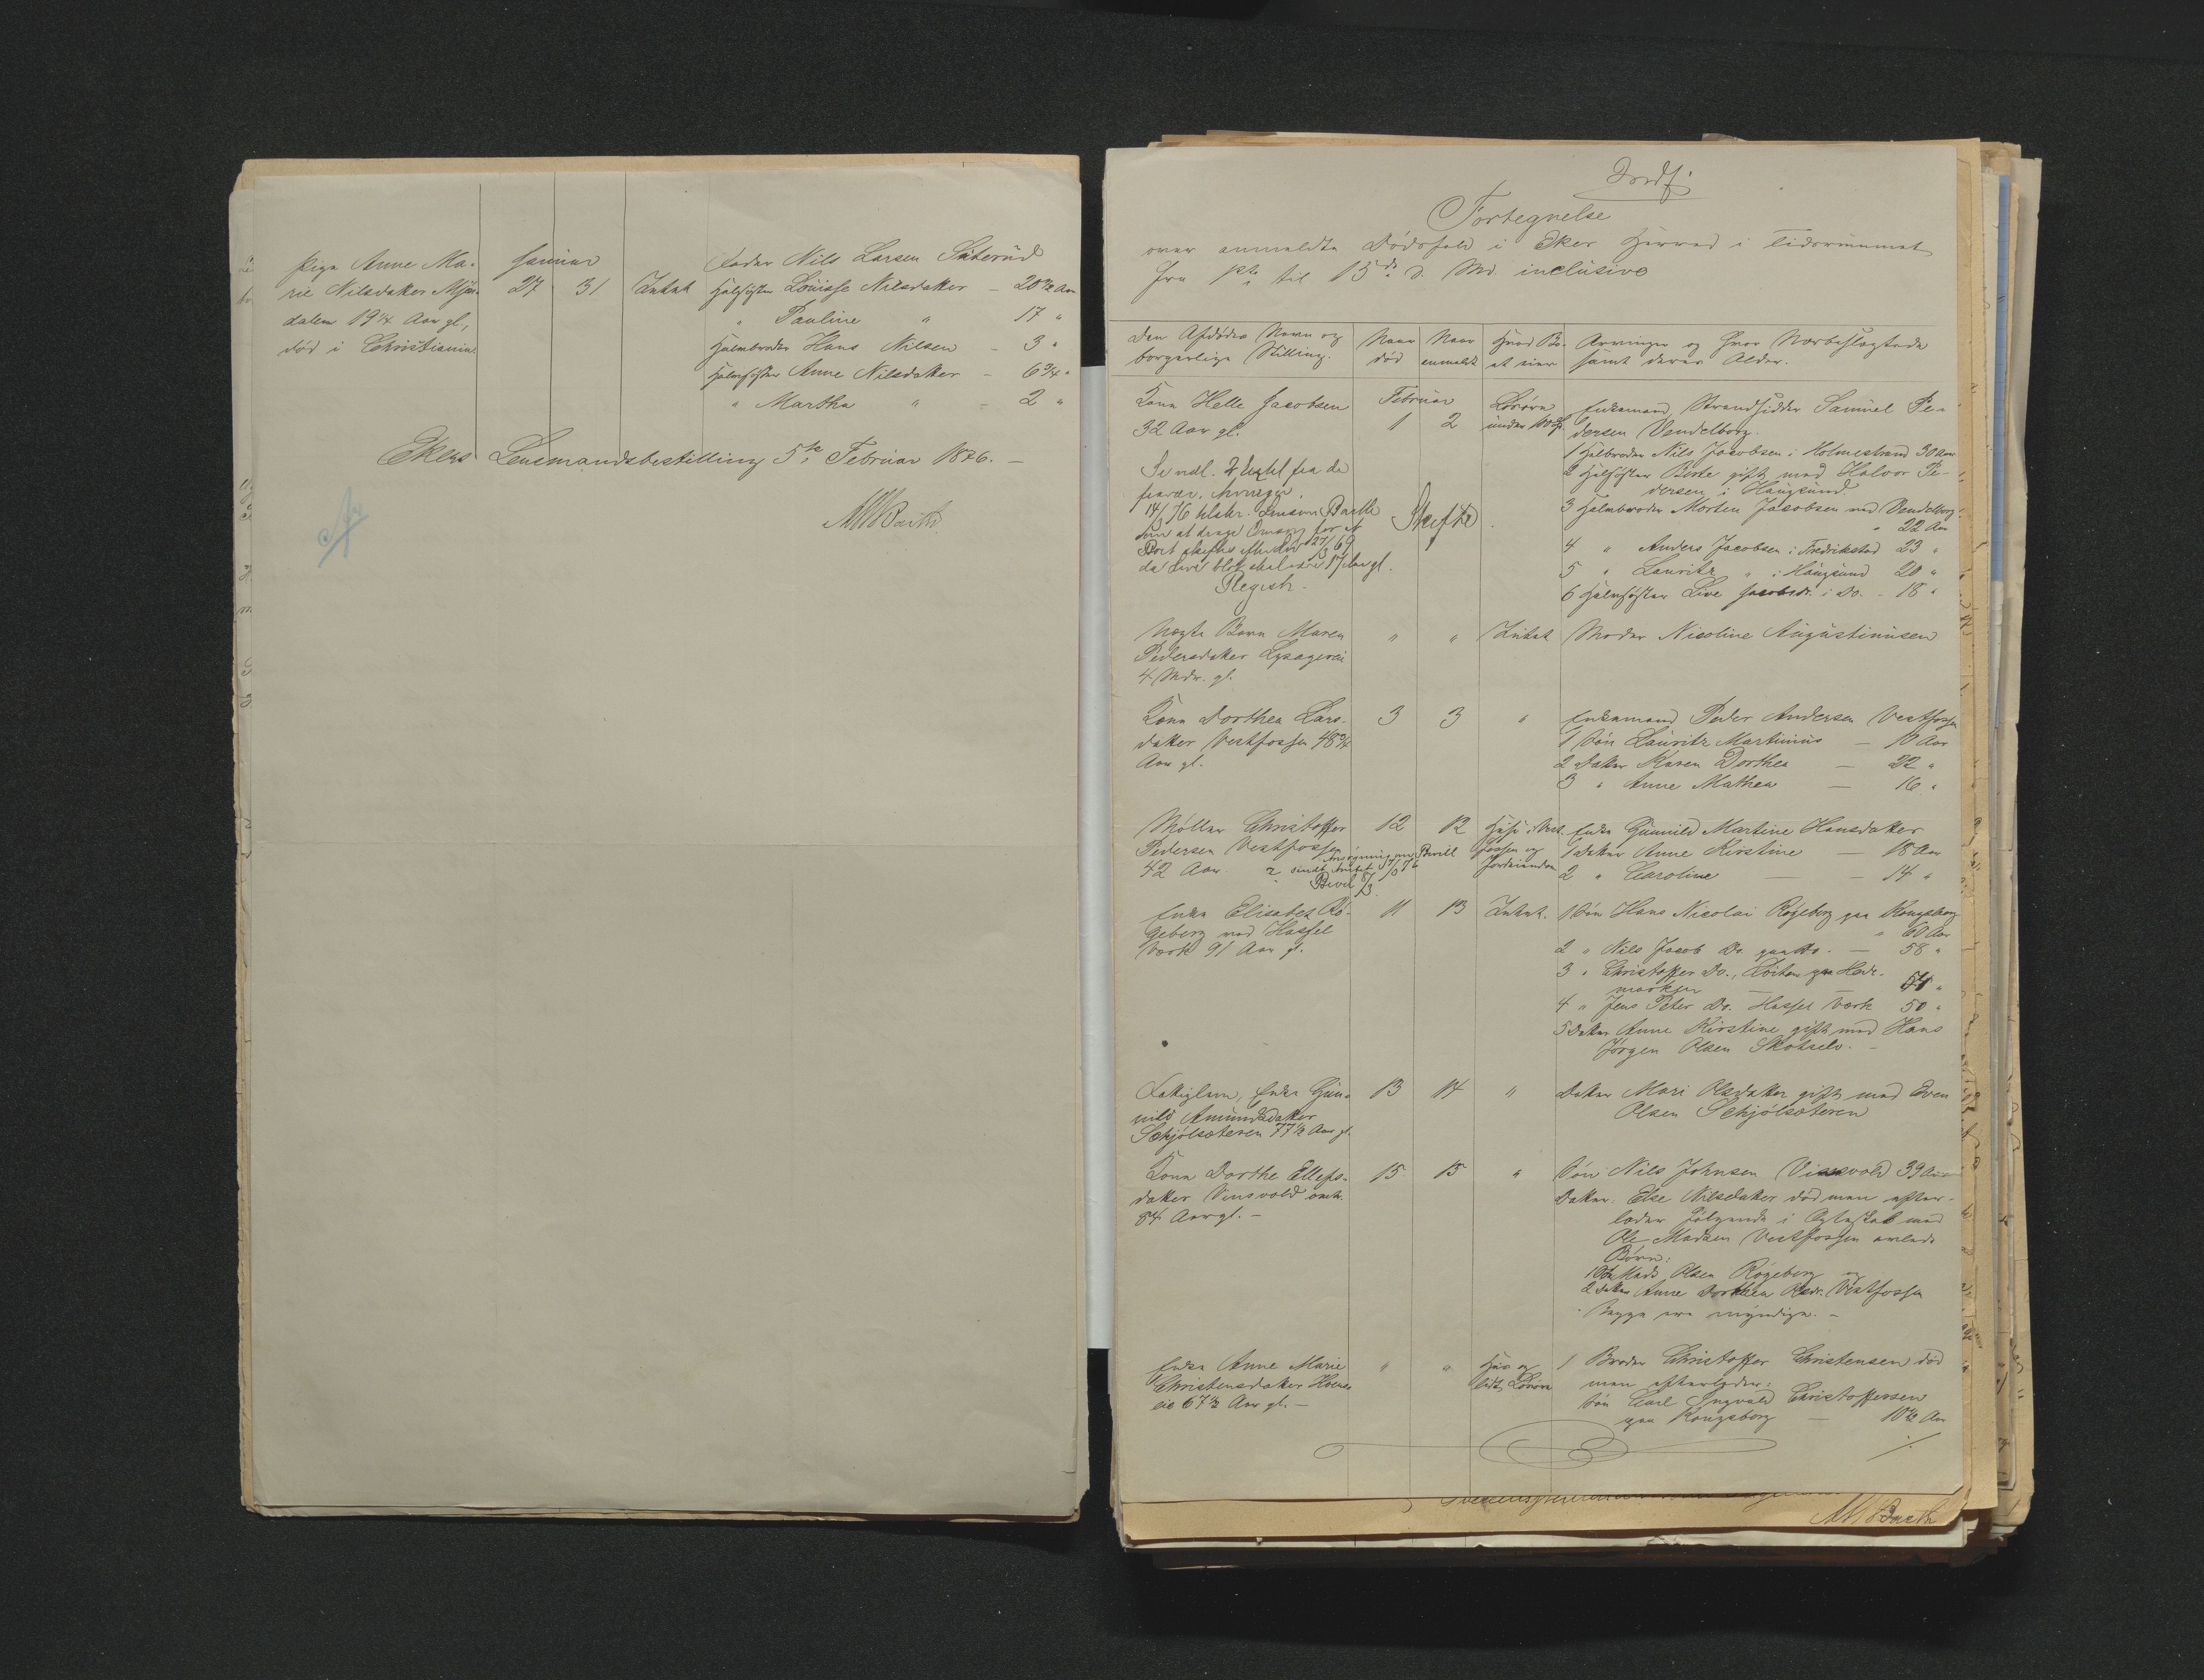 Pige Anne Ma-
rie Nilsdatter Mjøn-
dalen 19 1/4 Aar gl.,
død i Christiania.
Januar
27 31 Intet
Fader Nils Larsen Säterud
Helsøster Louise Nilsdatter – 20 1/2 Aar
" Pauline " 17 "
Halvbroder Hans Nilsen – 3 "
Halvsøster Anne Nilsdatter – 6 3/4 "
" Martha " – 2 "
Ekers Lensmandsbestilling 5te Februar 1876. –
MBarth
Fortegnelse
over anmeldte Dødsfald i Eker Herred i Tidsrummet
fra 1ste til 15de d. Md. inclusive
Den Afdødes Navn og
borgerlige Stilling.
Naar
død
Naar
anmeldt
Hvad Bo-
et eier
Arvinger og hvor Nærbeslægtede
samt deres Alder.
Kone Helle Jacobsen
32 Aar gl.
Februar
1 2
Løsøre
under 100
Enkemand, Strandsidder Samuel Pe-
dersen Vendelborg.
1 Helbroder Nils Jacobsen i Holmestrand 30 Aar
2 Helsøster Berte gift med Halvor Pe-
dersen i Haugsund.
3 Halvbroder Morten Jacobsen ved Vendelborg
" 22 Aar
4 " Anders Jacobsen i Fredrikstad 23 "
5 " Lauritz " i Haugsund 20 "
6 Halvsøster Live Jacobsdr. i Do. – 18 "
Se vedl. fra de
fravær. Arvinger.
14/3 76 tilskr. Lensm. Barth
om at drage Omsorg for at
Boet skiftes
da Live blot skal være 17 Aar gl.
Registr.
Skifte
Uægte Barn Maren
Pedersdatter Lysageren
4 Mdr. gl.
" " Intet
Moder Nicoline Augustinusen
Kone Dorthea Lars-
datter Vestfossen 48 3/4
Aar gl.
3 3 "
Enkemand Peder Andersen Vestfossen
1 Søn Lauritz Martinius – 10 Aar
2 Datter Karen Dorthea – 22 "
3 " Anne Mathea – 16 "
Møller Christoffer
Pedersen Vestfossen
42 Aar
12 12
Huse i Vest-
fossen og
Jordeiendom
Ansøgning om Bevill
Bevil 8/3
Enke Gunnild Martine Hansdatter
1 Datter Anne Kirstine – 18 Aar
2 " Caroline – 14 "
Enke Elisabet Rö-
geberg ved Hassel
Værk 91 Aar gl.
11 13 Intet.
1 Søn Hans Nicolai Rögeberg paa Kongsberg
" 60 Aar
2 " Nils Jacob Do. paa Do. – 58 "
3 " Christoffer Do., Løiten paa Hede-
marken – 54 "
4 " Jens Peter Do. Hassel Værk 50 "
5 Datter Anne Kirstine gift med Hans
Jørgen Olsen Skotselv. –
Fattiglem, Enke Gun-
nild Amundsdatter
Schjølsæteren 77 1/2 Aar gl.
13 14 "
Datter Mari Olsdatter gift med Even
Olsen Schjolsæteren
Kone Dorthe Ellefs-
datter Vinsvold omtr.
84 Aar gl. –
15 15 "
Søn Nils Johnsen Vinsvold 39 Aar
Datter Else Nilsdatter død men efter-
lader følgende i Ægteskab med
Ole Madsen Vestfossen avlede
Børn:
1 Søn Mads Olsen Rögeberg og
2 Datter Anne Dorthea Olsdr. Vestfossen
Begge ere myndige. –
Enke Anne Marie
Christensdatter Hoens-
eie 67 1/2 Aar gl. –
" "
Hus og
lidt Løsøre
1 Broder Christoffer Christensen død
men efterlader:
Søn Carl Ingvald Christoffersen
paa Kongsberg – 10 1/2 Aar
MBarth